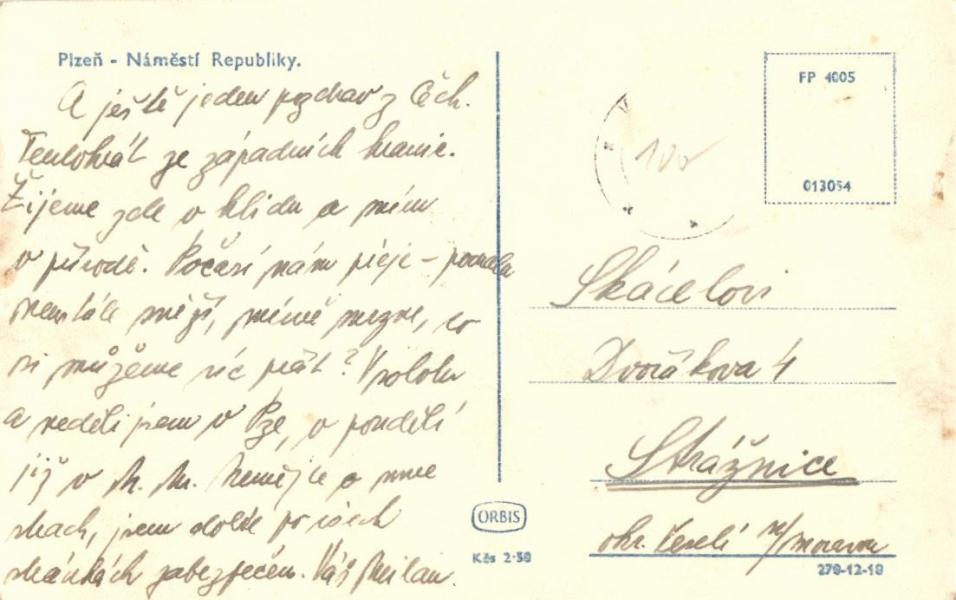 Plzeň - Náměstí Republiky.
A ještě jeden pozdrav z Čech.
Tentokrát ze západních hranic.
Žijeme zde v klidu a míru
v přírodě. Počasí nám přeje -
neustále sněží, mírně mrzne, co
si můžeme víc přát? V sobotu
a neděli jsem v Pze, v pondělí
již v N. M. Nemějte o mne
strach, jsem dobře po všech
stránkách zabezpečen. Váš Milan.
FP 4005
013054
100
Skácelovi
Dvořákova 4
Strážnice
okr. Veselí n/Moravou
ORBIS
Kčs 2·50
279-12-18